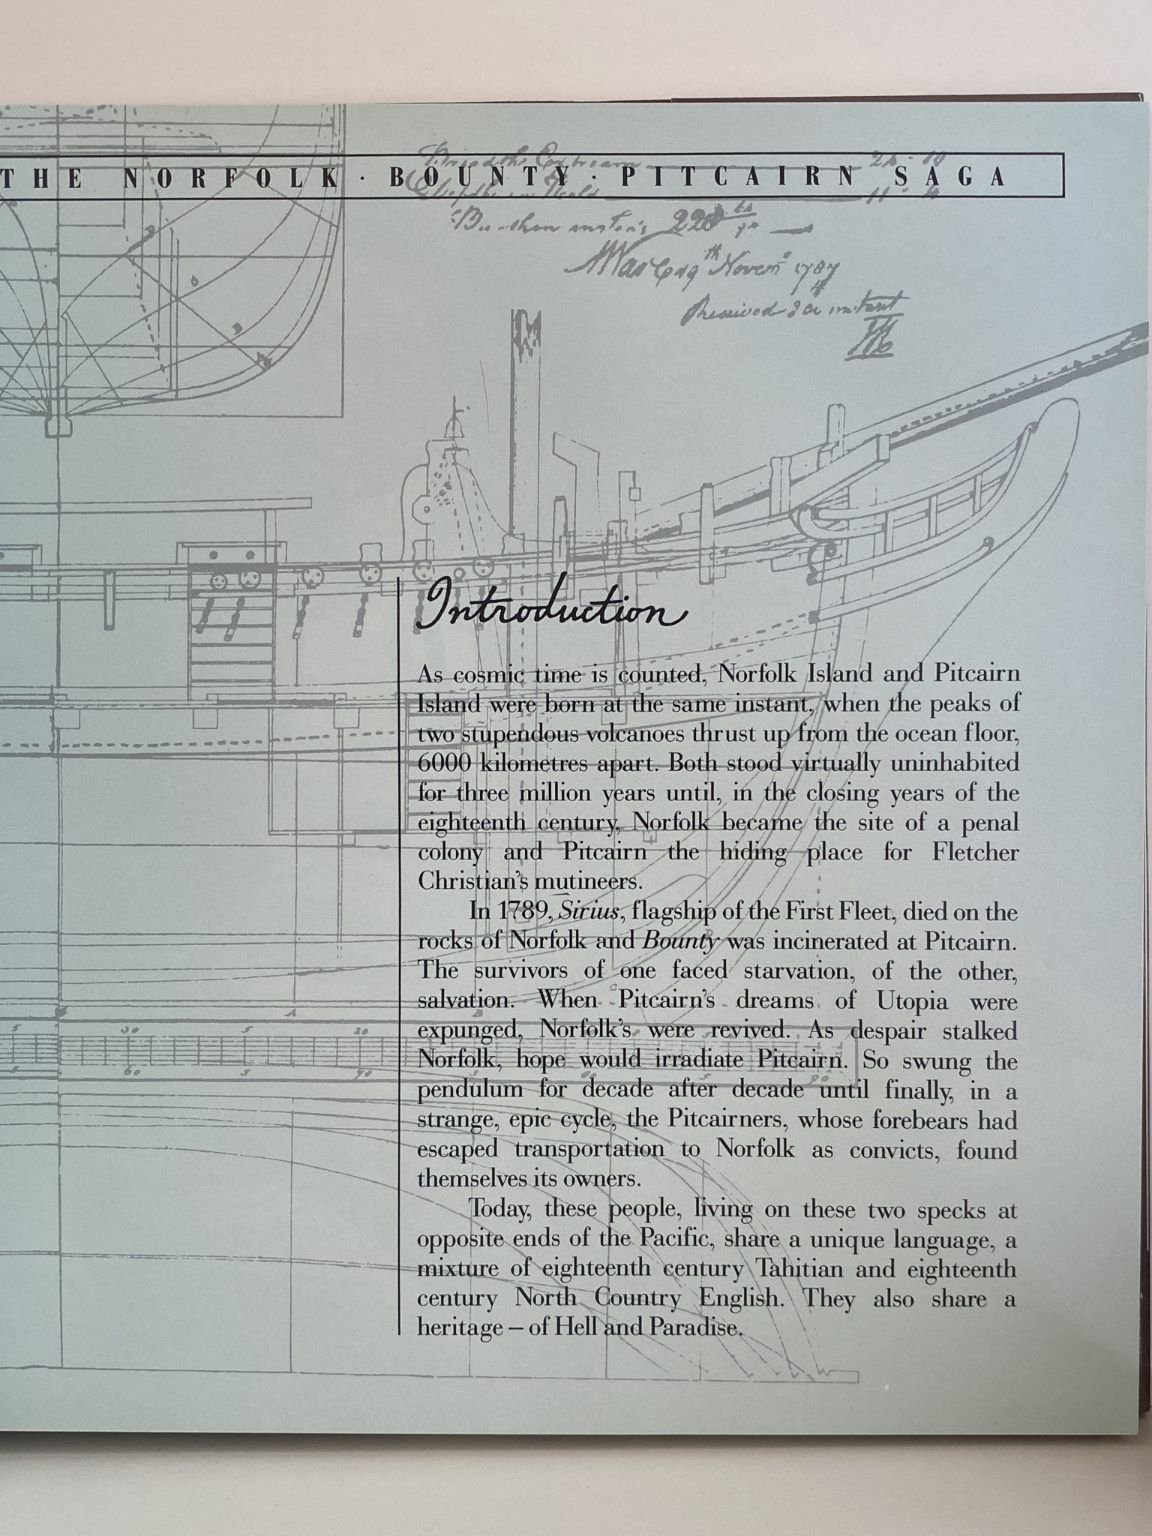 THE NORFOLK · BOUNTY · PITCAIRN SAGA
24 - 10
Burthen in tons 220
Navy Novem 1787
Received
Introduction
As cosmic time is counted, Norfolk Island and Pitcairn
Island were born at the same instant, when the peaks of
two stupendous volcanoes thrust up from the ocean floor,
6000 kilometres apart. Both stood virtually uninhabited
for three million years until, in the closing years of the
eighteenth century, Norfolk became the site of a penal
colony and Pitcairn the hiding place for Fletcher
Christian's mutineers.
In 1789, Sirius, flagship of the First Fleet, died on the
rocks of Norfolk and Bounty was incinerated at Pitcairn.
The survivors of one faced starvation, of the other,
salvation. When Pitcairn's dreams of Utopia were
expunged, Norfolk's were revived. As despair stalked
Norfolk, hope would irradiate Pitcairn. So swung the
pendulum for decade after decade until finally, in a
strange, epic cycle, the Pitcairners, whose forebears had
escaped transportation to Norfolk as convicts, found
themselves its owners.
Today, these people, living on these two specks at
opposite ends of the Pacific, share a unique language, a
mixture of eighteenth century Tahitian and eighteenth
century North Country English. They also share a
heritage – of Hell and Paradise.